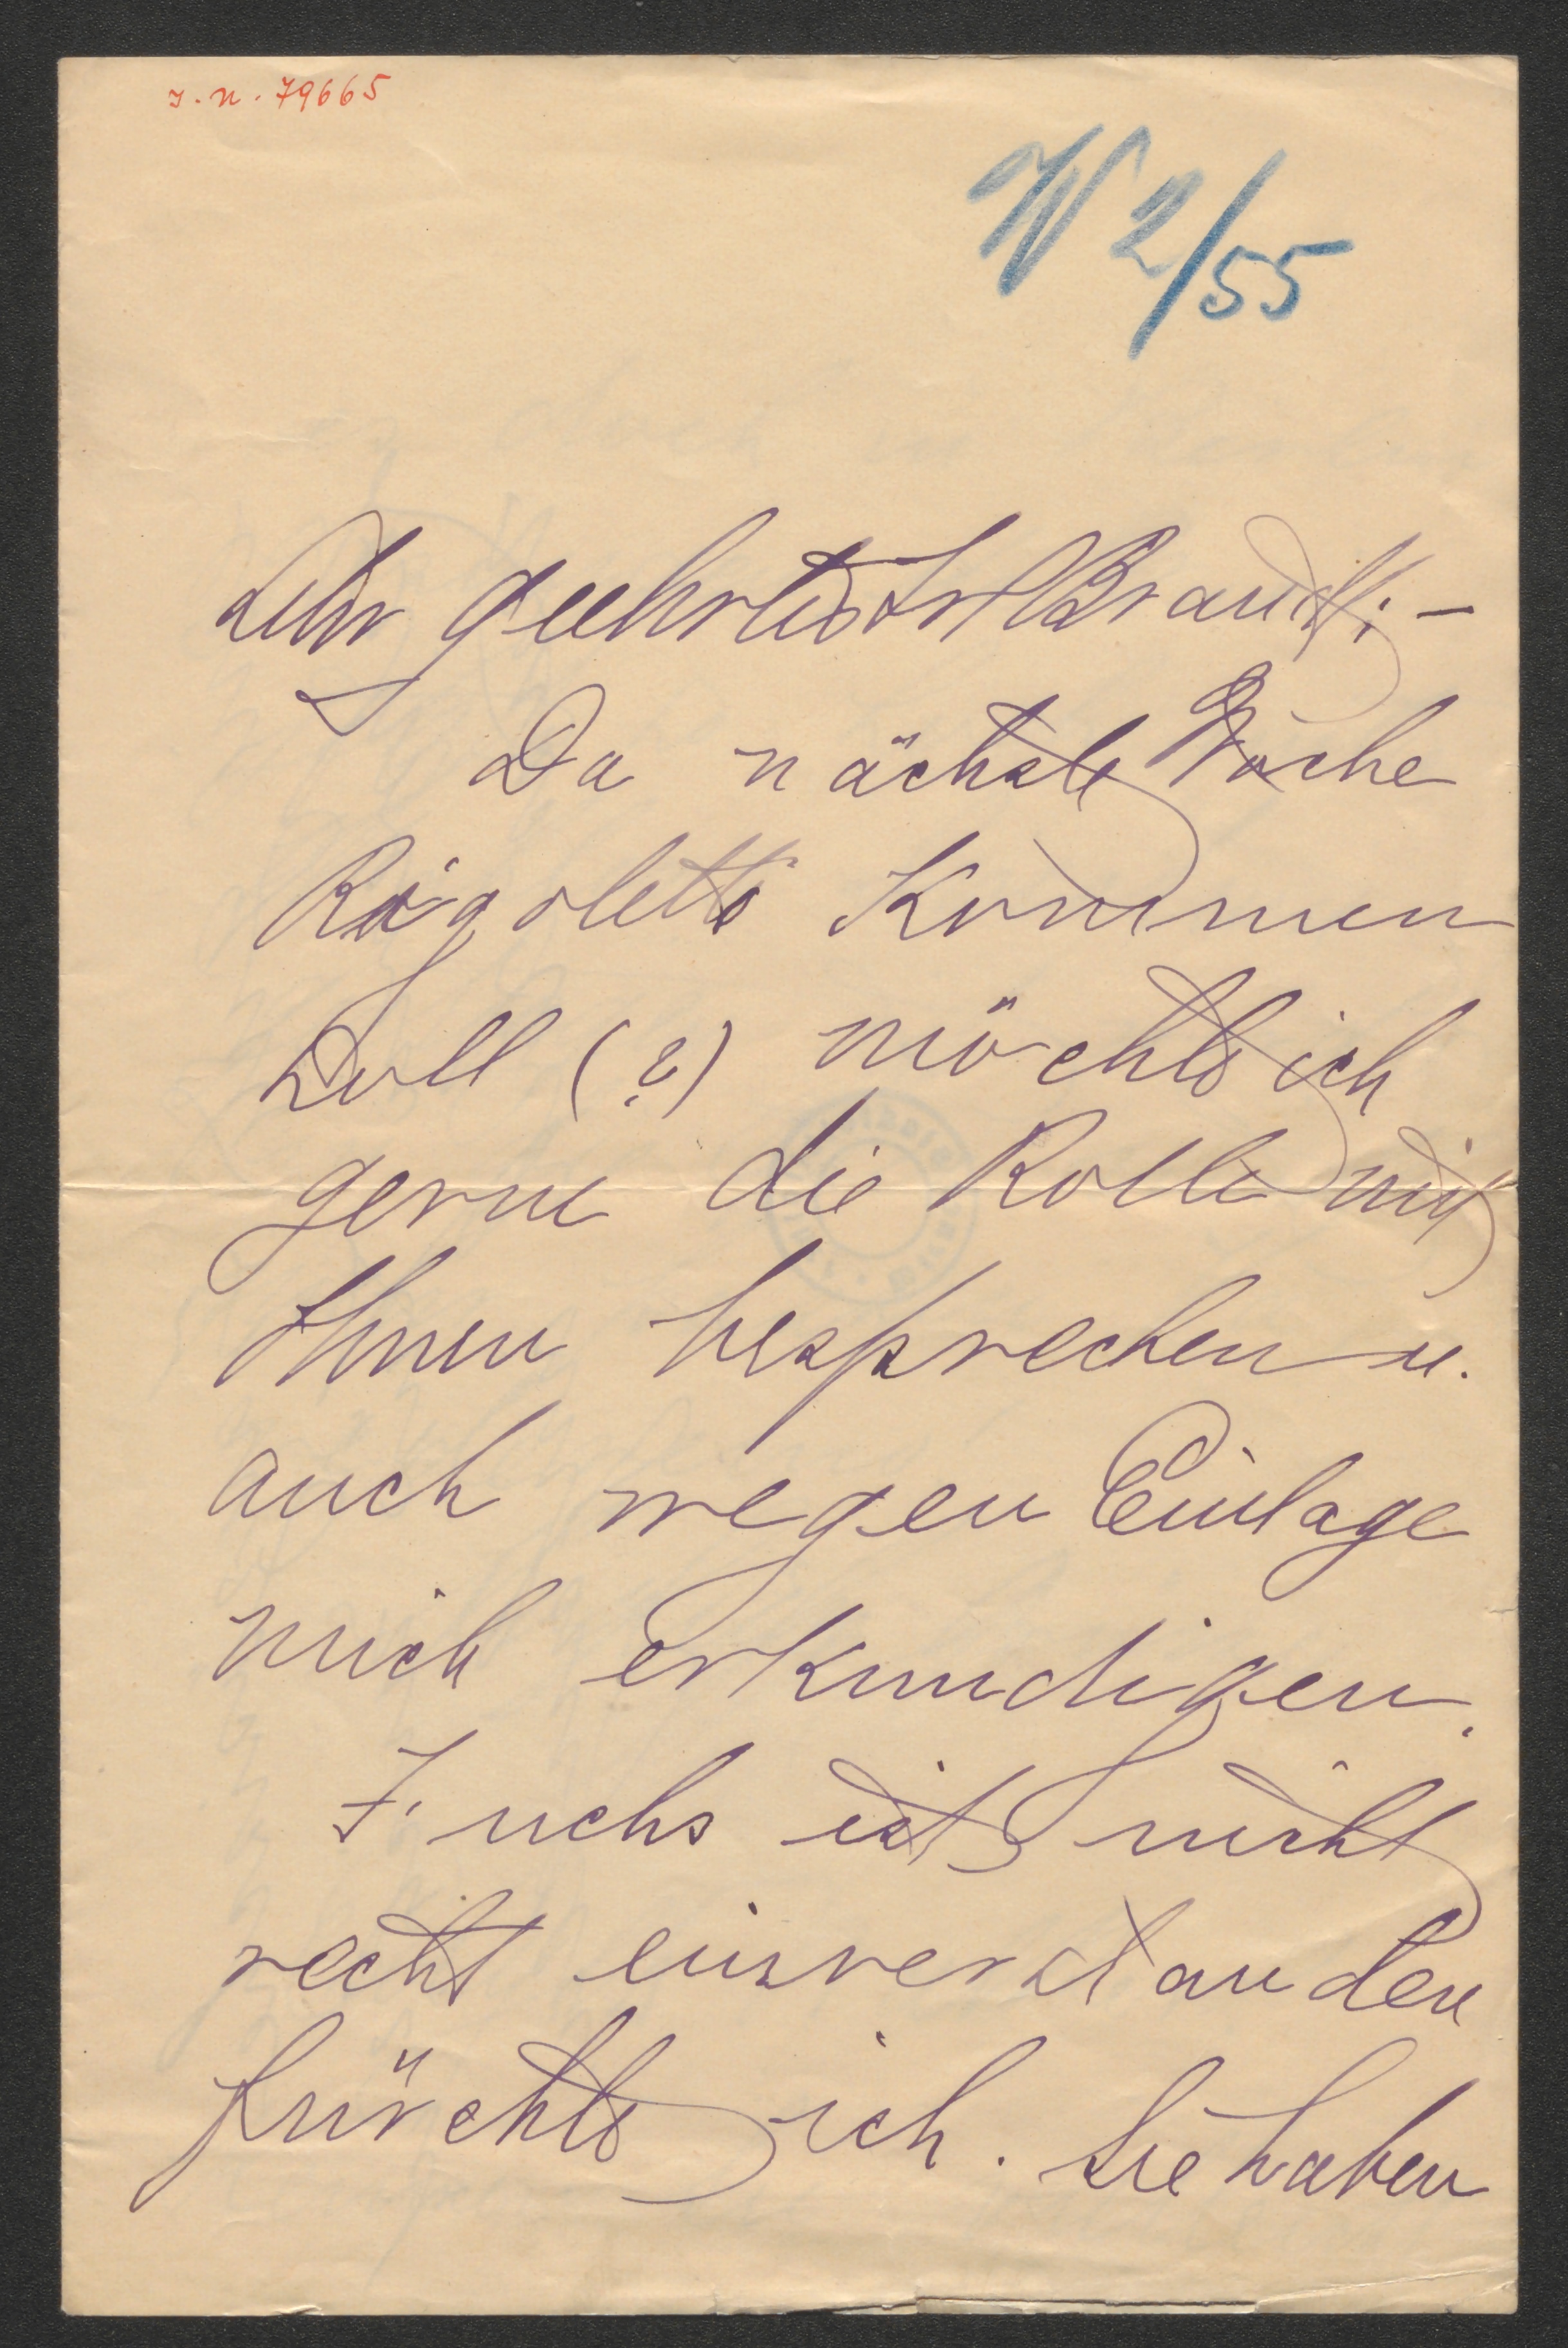 I. N. 79665
W 2/55
Sehr geehrtes Frl Brandt; —
Da nächste Woche
Rigoletto kommen
soll (?) möchte ich
gerne die Rolle mit
Ihnen besprechen u.
auch wegen Einlage
mich erkundigen.
Fuchs ist nicht
recht einverstanden
fürchte ich. Sie haben